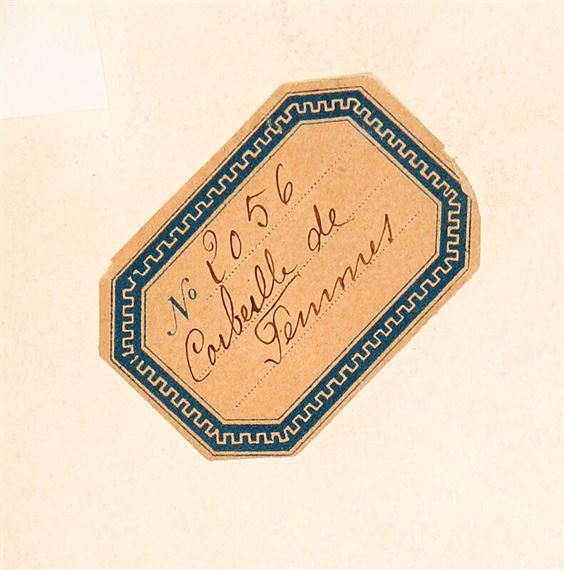 No 2056
Corbeille de
Femmes